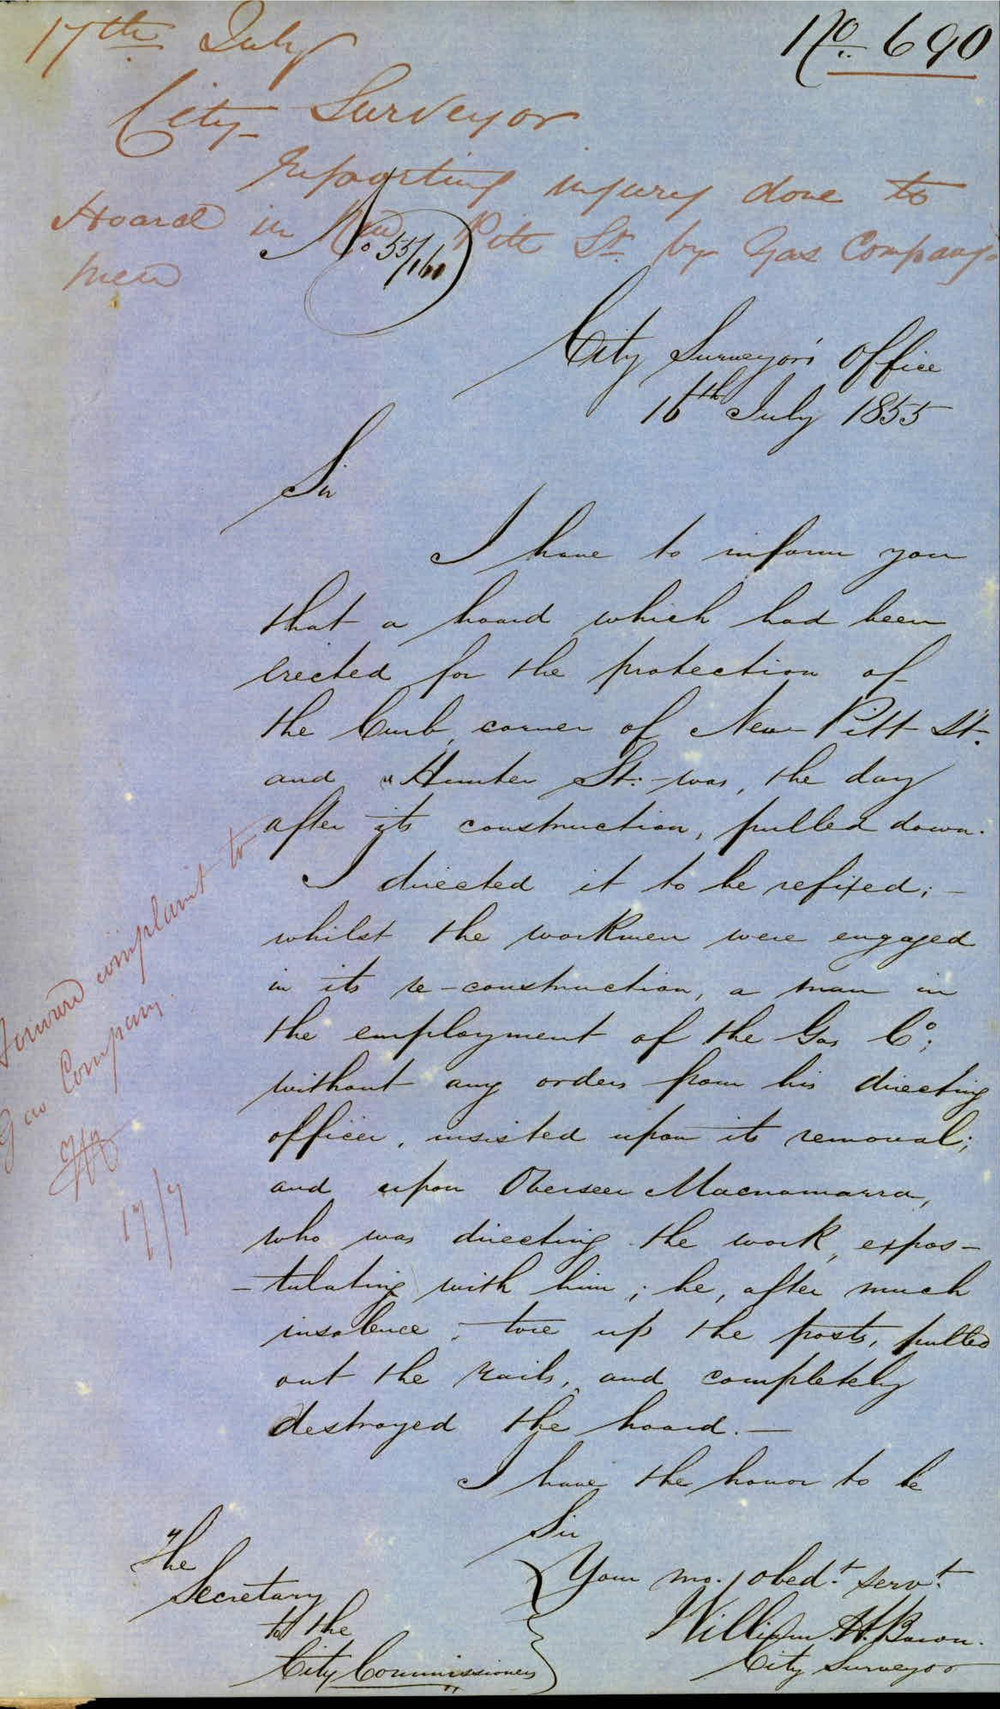 17th July
No 690
City Surveyor
Reporting injury done to
Hoard in New Pitt St. by Gas Company's
men
No 55/160
City Surveyor's Office
16th July 1855
Sir
I have to inform you
that a hoard which had been
erected for the protection of
the Curb, corner of New Pitt St.
and "Hunter St: was, the day
after its construction, pulled down.
I directed it to be refixed; -
whilst the workmen were engaged
in its re-construction, a man in
the employment of the Gas Co;
without any orders from his directing
officer, insisted upon its removal;
and upon Overseer Macnamarra,
who was directing the work, expos-
-tulating with him; he, after much
insolence, tore up the posts, pulled
out the rails, and completely
destroyed the hoard. -
I have the honor to be
Sir
Your mo. obed.t serv.t
William H. Bacon.
City Surveyor
The
Secretary
to the
City Commissioners
Forward complaint to
Gas Company.
17/7